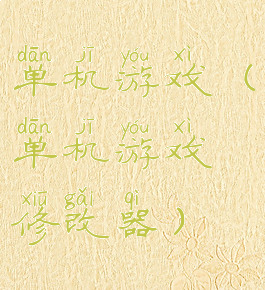 dān jī you xì
单机游戏（
dān jī you xì
单机游戏
xiū gǎi qì
修改器）